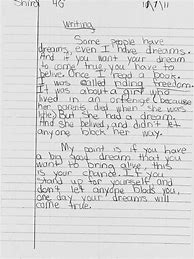 Shira 4G 10/7/11
Writing
Some people have
dreams, even I have dreams.
And if you want your dream
to come true, you have to
belive. Once I read a book.
It was called riding freedom.
It was about a girl who
lived in an orfenige (because
her parents died when she was
little) But she had a dream.
And she belived, and didn't let
any one block her way.
My point is if you have
a big good dream that you
want to bring alive, this
is your chance. If you
stand up for yourself and
don't let anyone block you,
one day your dreams will
come true.